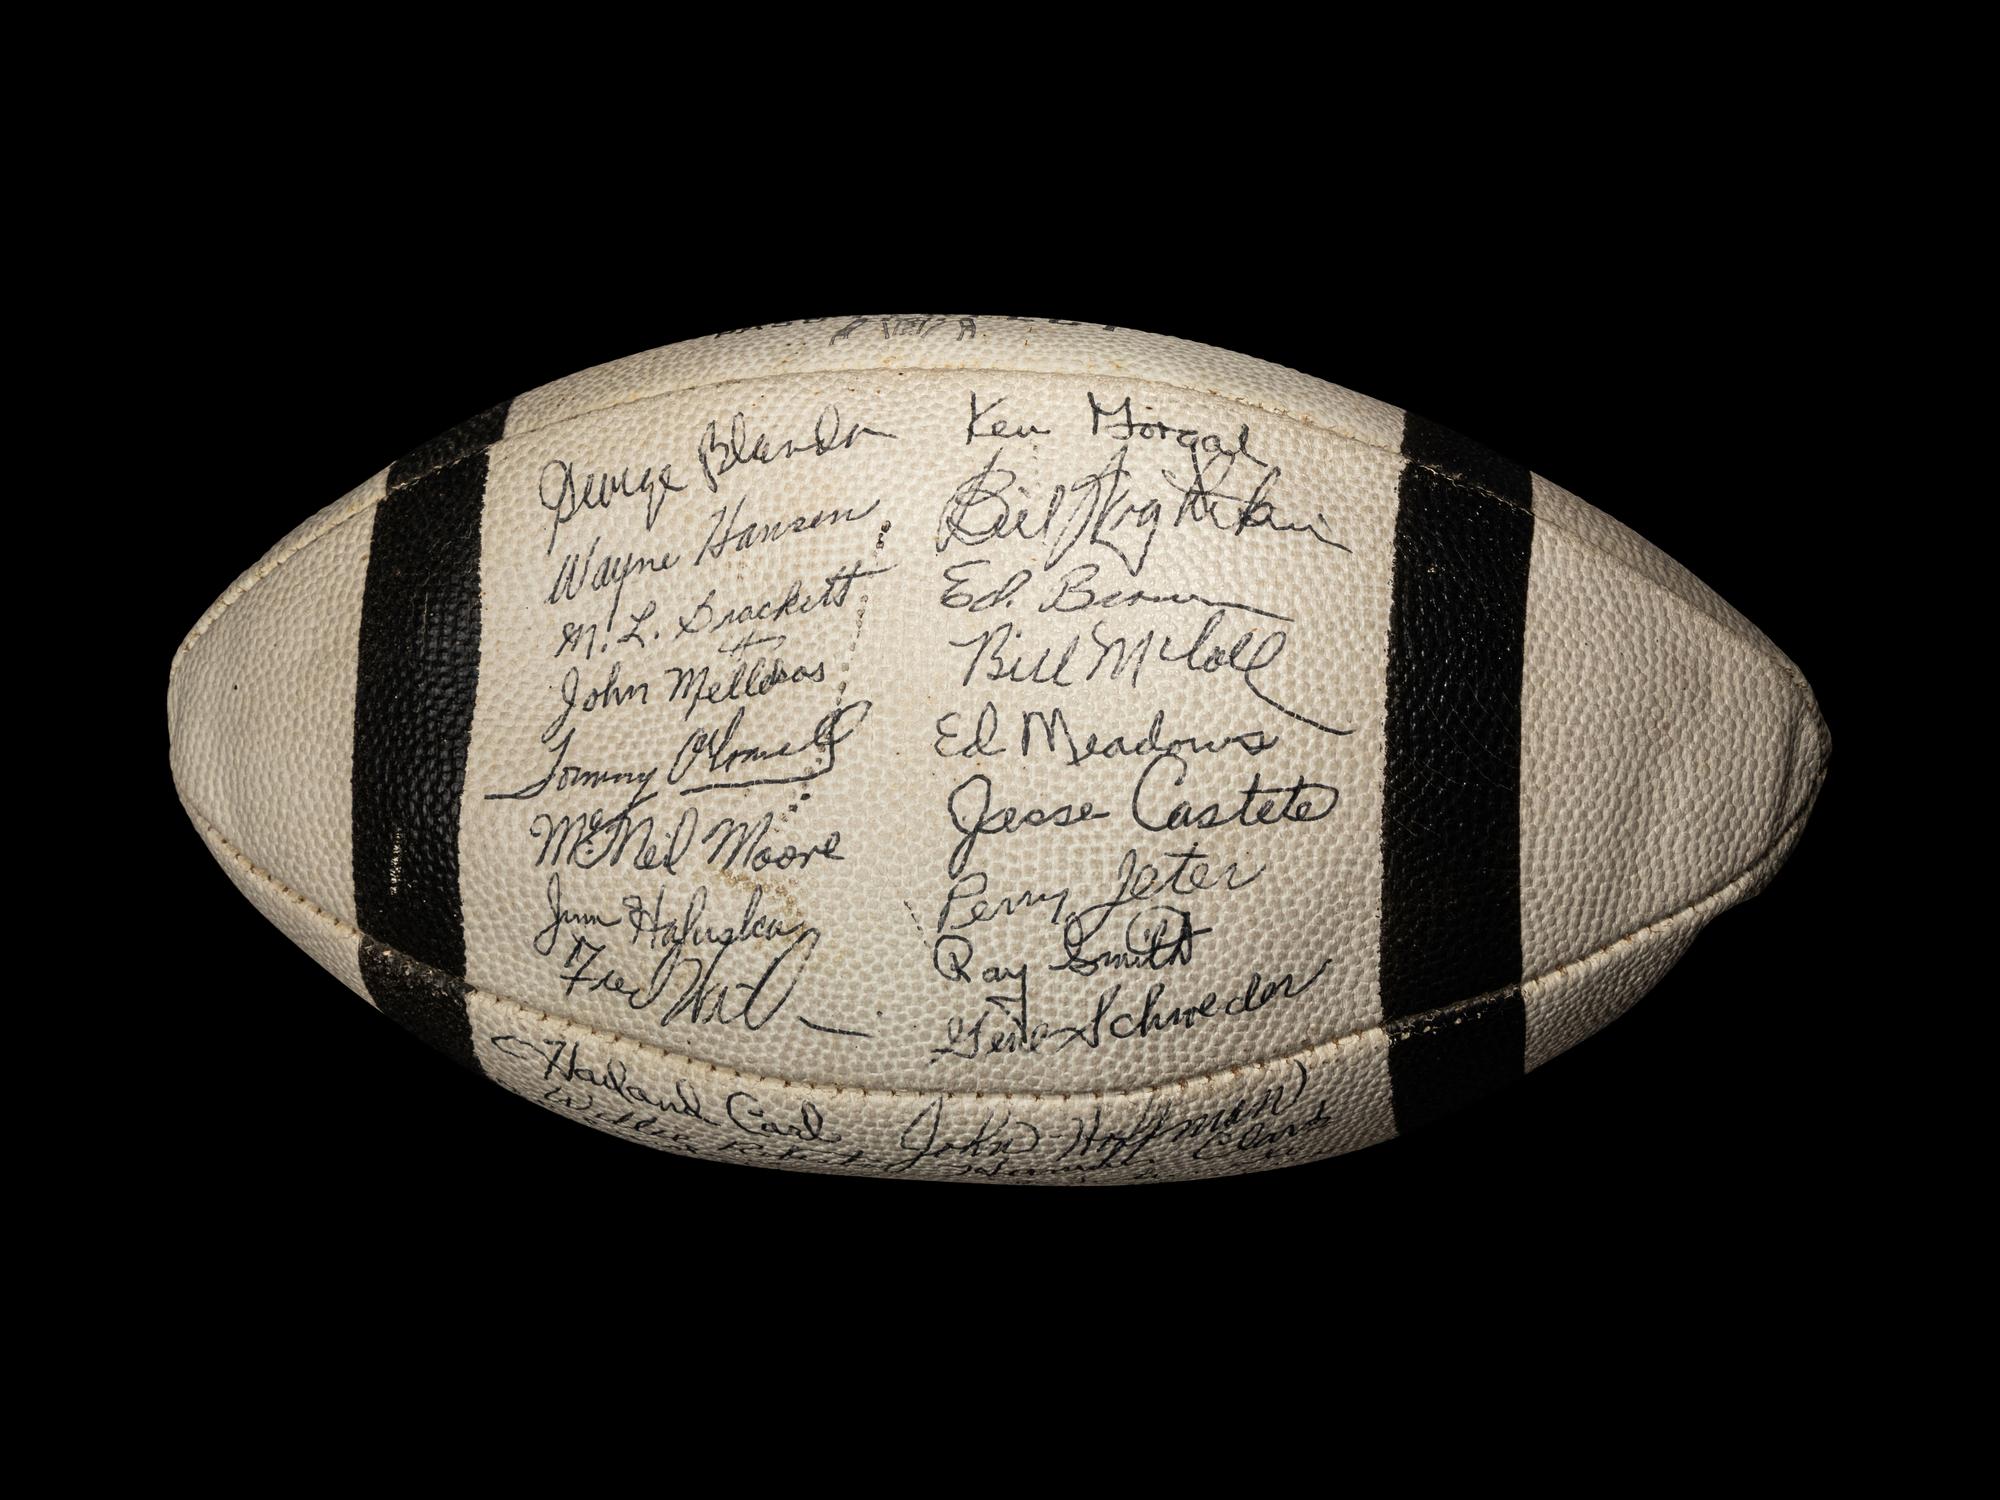 George Blanda
Wayne Hansen
M. L. Brackett
John Mellekas
Tommy O'Connell
McNeil Moore
Jim Haluska
Fred Williams
Ken Gorgal
Bill Wightkin
Ed. Brown
Bill McColl
Ed Meadows
Jesse Castete
Perry Jeter
Ray Smith
Gene Schroeder
Harland Carl
John Hoffman
Clark